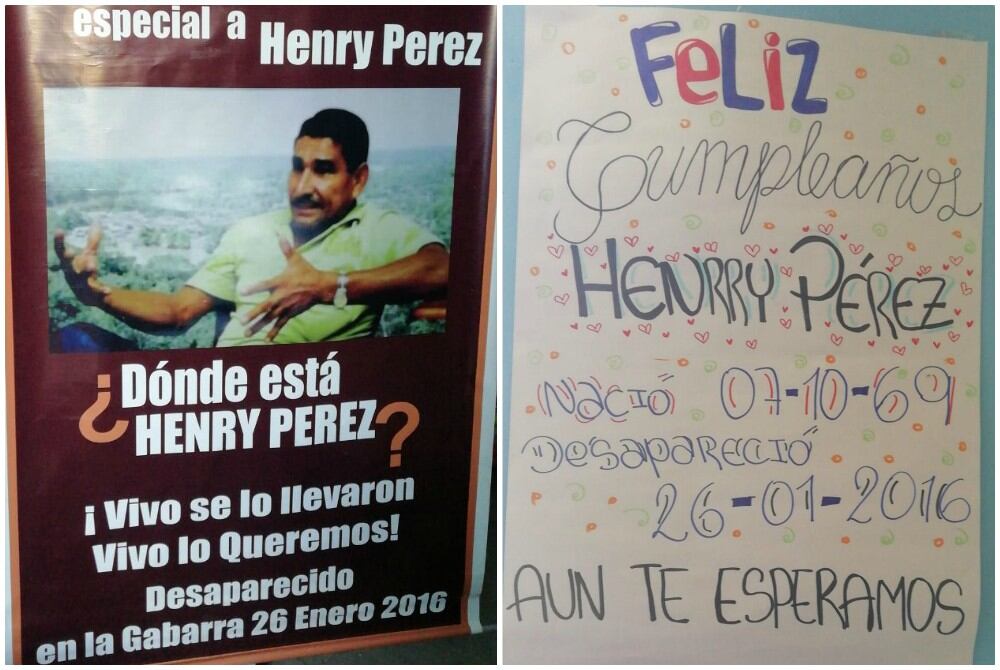 especial a Henry Perez
¿Dónde está
HENRY PEREZ?
¡Vivo se lo llevaron
Vivo lo Queremos!
Desaparecido
en la Gabarra 26 Enero 2016
FeLiZ
Cumpleaños
HENRRY PÉREZ
NACIÓ 07-10-69
DESAPARECIÓ
26-01-2016
AUN TE ESPERAMOS